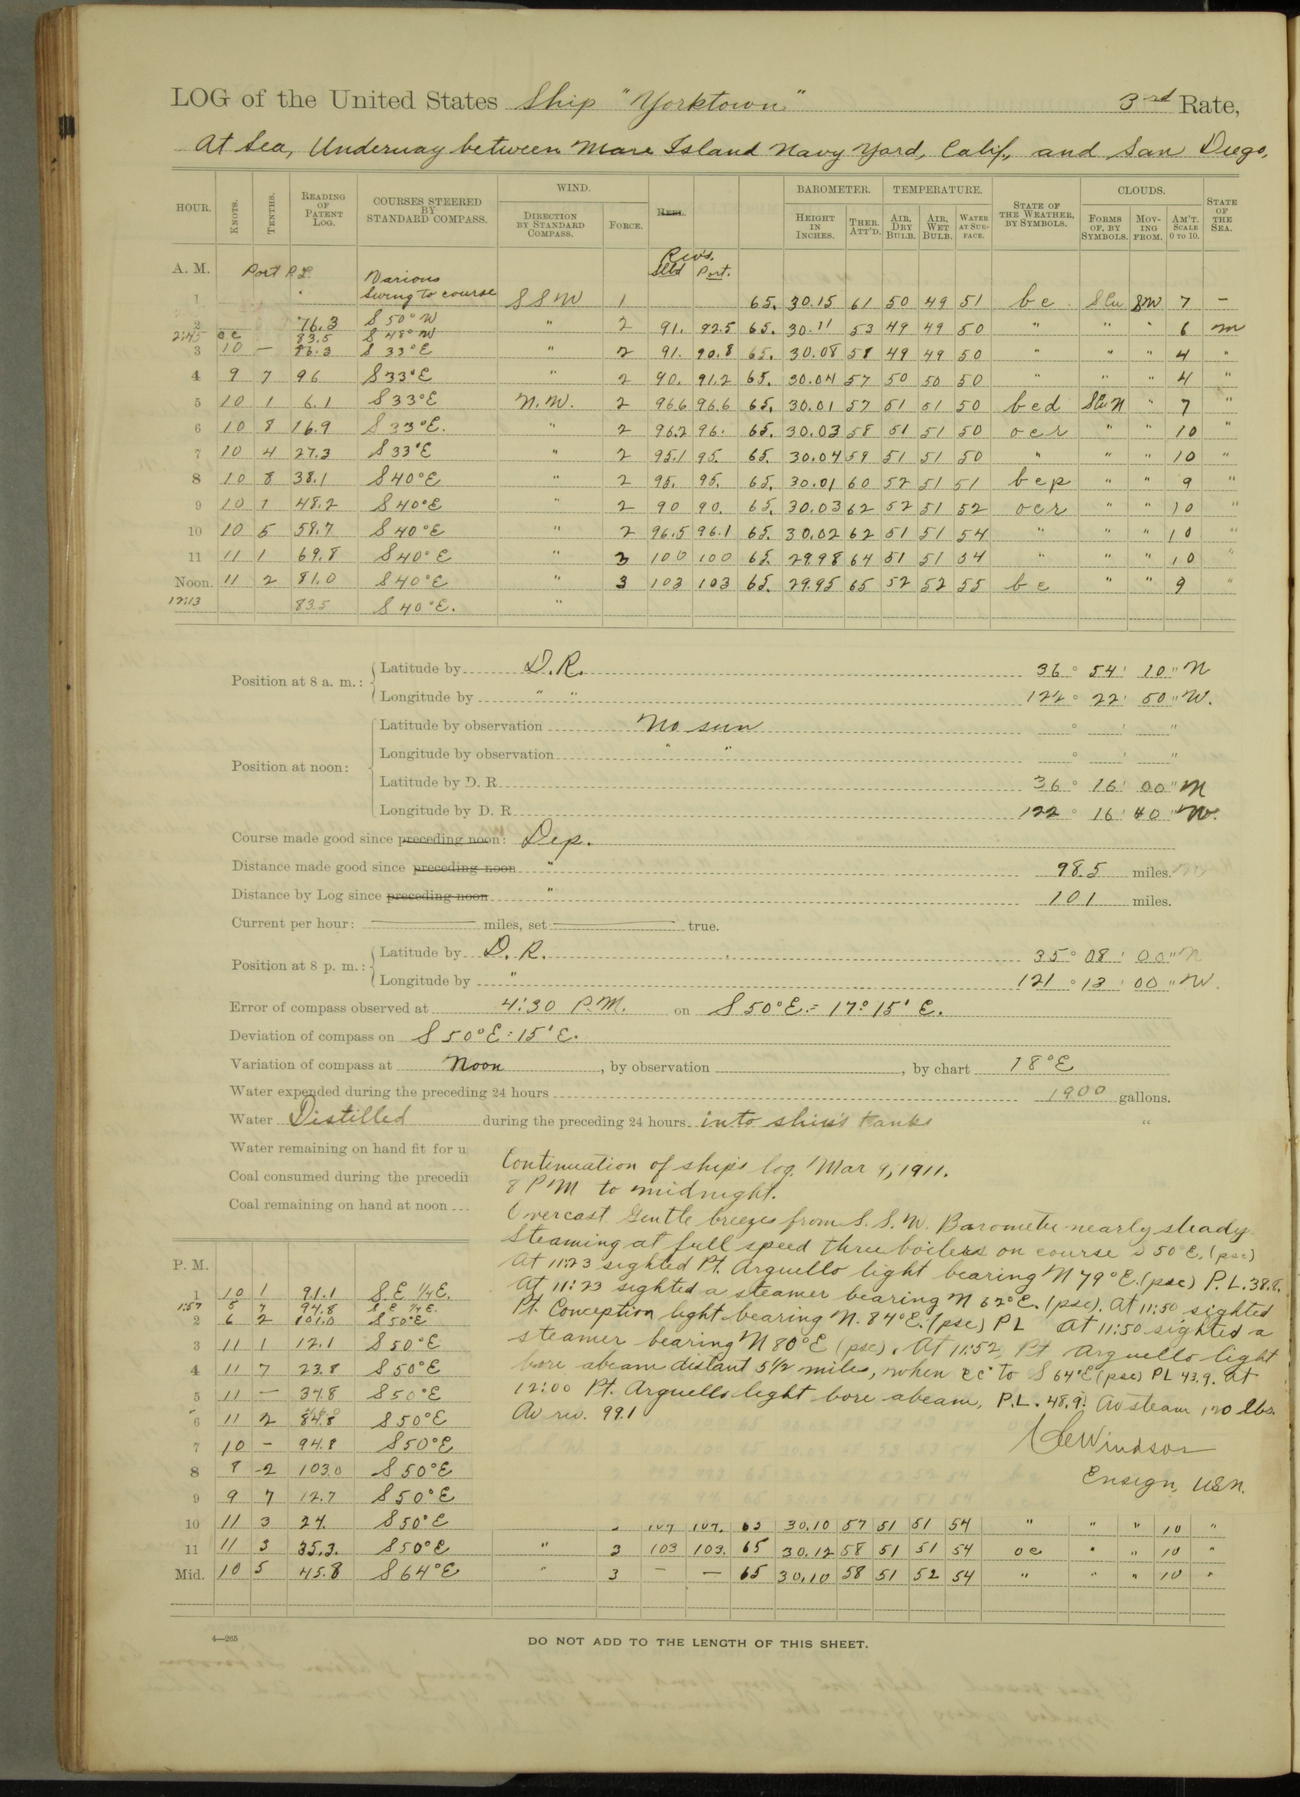 LOG of the United States Ship "Yorktown" 3rd Rate,
At Sea, Underway between Mare Island Navy Yard, Calif., and San Diego,
HOUR. KNOTS. TENTHS. READING OF PATENT LOG. COURSES STEERED BY STANDARD COMPASS. WIND. DIRECTION BY STANDARD COMPASS. FORCE. BAROMETER. HEIGHT IN INCHES. THER. ATT'D. TEMPERATURE. AIR, DRY BULB. AIR, WET BULB. WATER AT SURFACE. STATE OF THE WEATHER, BY SYMBOLS. CLOUDS. FORMS OF, BY SYMBOLS. MOVING FROM. AM'T. SCALE 0 TO 10. STATE OF THE SEA.
A. M. Port P.L. Various Rev's. Stbd Port.
1 Swing to course S S W 1 65. 30.15 61 50 49 51 b c S Cu SW 7 –
2 76.3 S 50° W " 2 91. 92.5 65. 30.11 53 49 49 50 " " " 6 m
2:45 c c 83.5 S 48° W
3 10 – 86.3 S 33°E " 2 91. 90.8 65. 30.08 58 49 49 50 " " " 4 "
4 9 7 96 S 33°E " 2 90. 91.2 65. 30.04 57 50 50 50 " " " 4 "
5 10 1 6.1 S 33°E N.W. 2 96.6 96.6 65. 30.01 57 51 51 50 b c d S Cu N " 7 "
6 10 8 16.9 S 33°E. " 2 96.2 96. 65. 30.03 58 51 51 50 o c r " " 10 "
7 10 4 27.3 S 33°E " 2 95.1 95. 65. 30.04 59 51 51 50 " " " 10 "
8 10 8 38.1 S 40°E " 2 95. 95. 65. 30.01 60 52 51 51 b c p " " 9 "
9 10 1 48.2 S 40°E " 2 90 90. 65. 30.03 62 52 51 52 o c r " " 10 "
10 10 5 58.7 S 40°E " 2 96.5 96.1 65. 30.02 62 51 51 54 " " " 10 "
11 11 1 69.8 S 40°E " 3 100 100 65. 29.98 64 51 51 54 " " " 10 "
Noon. 11 2 81.0 S 40°E " 3 103 103 65. 29.95 65 52 52 55 b c " " 9 "
12:13 83.5 S 40°E. "
Position at 8 a. m.: Latitude by D.R. 36° 54' 10" N
Longitude by " " 122° 22' 50" W.
Position at noon: Latitude by observation No sun ° ' "
Longitude by observation " " ° ' "
Latitude by D. R. 36° 16' 00" N
Longitude by D. R. 122° 16' 40" W.
Course made good since preceding noon: Dep.
Distance made good since preceding noon " 98.5 miles.
Distance by Log since preceding noon " 101 miles.
Current per hour: miles, set true.
Position at 8 p. m.: Latitude by D. R. 35° 08' 00" N
Longitude by " 121° 13' 00" W.
Error of compass observed at 4:30 P.M. on S 50°E. = 17° 15' E.
Deviation of compass on S 50°E : 15' E.
Variation of compass at Noon, by observation , by chart 18°E
Water expended during the preceding 24 hours 1900 gallons.
Water Distilled during the preceding 24 hours into ship's tanks "
Water remaining on hand fit for u
Coal consumed during the precedin
Coal remaining on hand at noon
Continuation of ship's log Mar 9, 1911.
8 PM to midnight.
Overcast Gentle breezes from S.S.W. Barometer nearly steady.
Steaming at full speed three boilers on course S 50°E. (psc)
At 11:23 sighted Pt. Arguello light bearing N 79°E. (psc) P.L. 38.9.
At 11:23 sighted a steamer bearing N 62°E. (psc). At 11:50 sighted
Pt. Conception light bearing N. 84°E. (psc) PL " At 11:50 sighted a
steamer bearing N 80°E (psc). At 11:52 Pt Arguello light
bore abeam distant 5½ miles, when cc to S 64°E (psc) PL 43.9. At
12:00 Pt. Arguello light bore abeam, P.L. 48.9. Av steam 120 lbs.
Av rev. 99.1
Windsor
Ensign, USN.
P. M.
1 10 1 91.1 S.E. ¼E.
1:57 5 7 94.8 S E ¼E.
2 6 2 101.0 S 50°E
3 11 1 12.1 S 50°E
4 11 7 23.8 S 50°E
5 11 – 34.8 S 50°E
6 11 2 84.8 S 50°E
7 10 – 94.8 S 50°E
8 8 2 103.0 S 50°E
9 9 7 12.7 S 50°E
10 11 3 24. S 50°E 107 107. 65 30.10 57 51 51 54 " " " 10 "
11 11 3 35.3. S 50°E " 3 103 103. 65 30.12 58 51 51 54 o c " " 10 "
Mid. 10 5 45.8 S 64°E " 3 – – 65 30.10 58 51 52 54 " " " 10 "
4—265
DO NOT ADD TO THE LENGTH OF THIS SHEET.